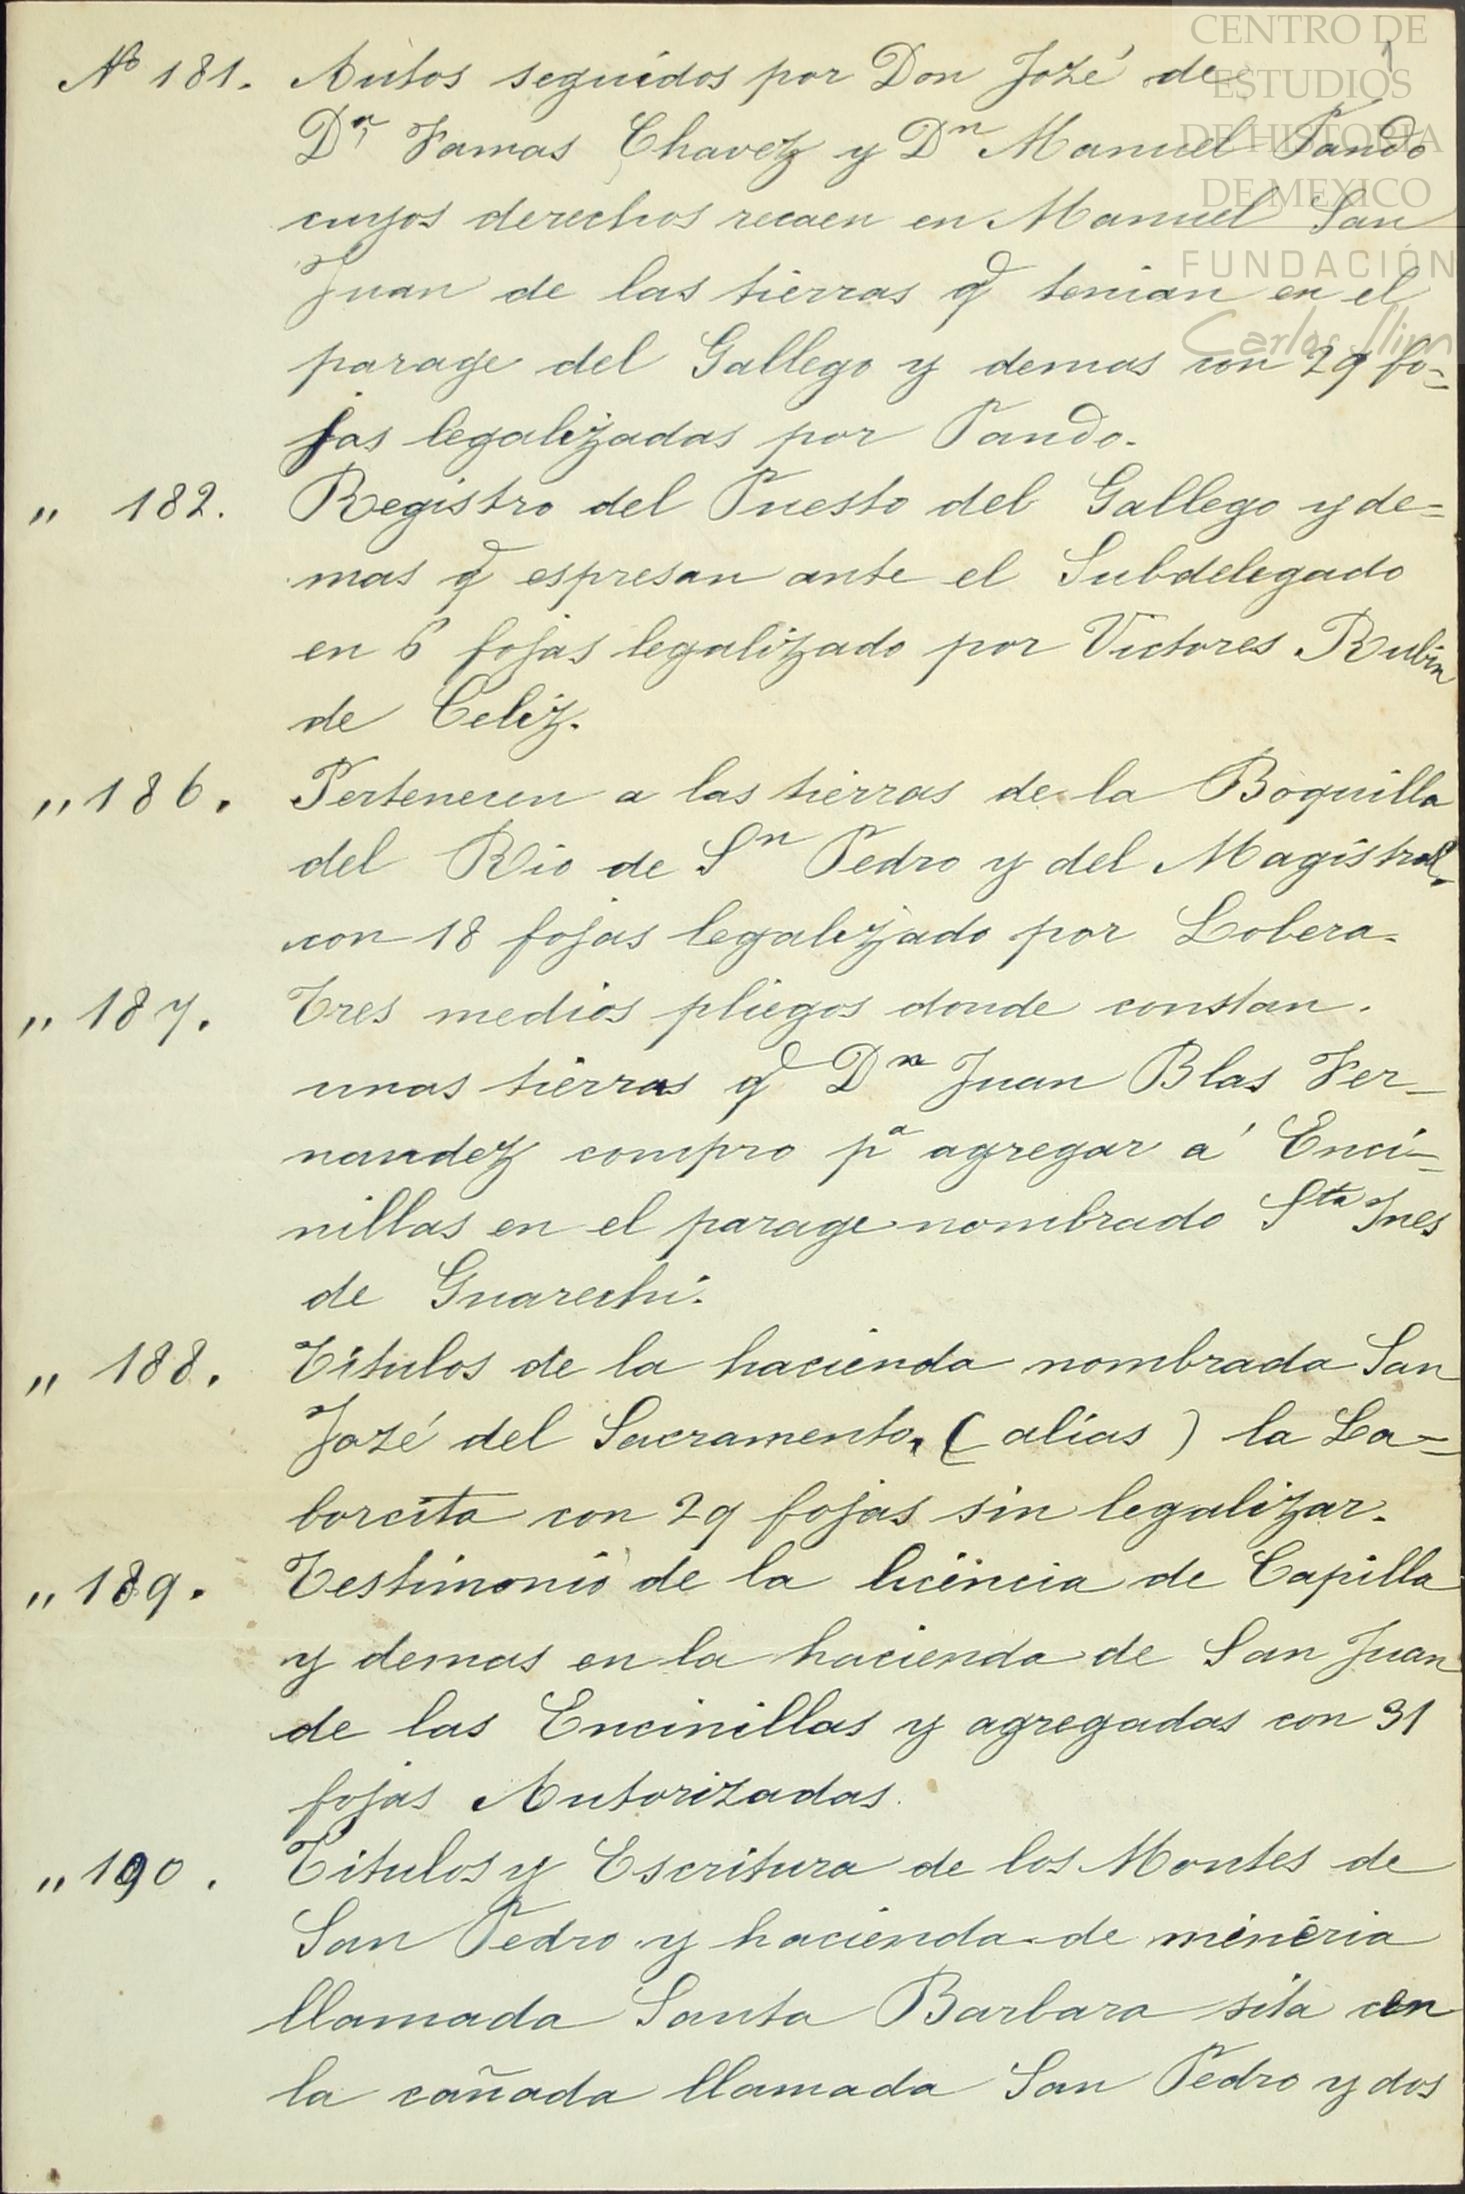 CENTRO DE
ESTUDIOS
DE HISTORIA
DE MEXICO
FUNDACIÓN
Carlos Slim
1
No 181. Autos seguidos por Don José de
Dn Famas Chavez y Dn Manuel Pando
cuyos derechos recaen en Manuel San
Juan de las tierras q tenian en el
parage del Gallego y demas con 29 fo=
jas legalizadas por Pando.
" 182. Registro del Puesto del Gallego y de=
mas q espresan ante el Subdelegado
en 6 fojas legalizado por Victores Rubin
de Celiz.
" 186. Pertenecen a las tierras de la Boquilla
del Rio de Sn Pedro y del Magistral.
con 18 fojas legalizado por Lobera.
" 187. Tres medios pliegos donde constan.
unas tierras q Dn Juan Blas Fer-
nandez compro pa agregar á Enci-
nillas en el parage nombrado Sta Ines
de Guarechi.
" 188. Titulos de la hacienda nombrada San
José del Sacramento. (alias) la La=
borcita con 29 fojas sin legalizar.
" 189. Testimonio de la licencia de Capilla
y demas en la hacienda de San Juan
de las Encinillas y agregadas con 31
fojas Autorizadas.
" 190. Titulos y Escritura de los Montes de
San Pedro y hacienda de mineria
llamada Santa Barbara sita en
la cañada llamada San Pedro y dos